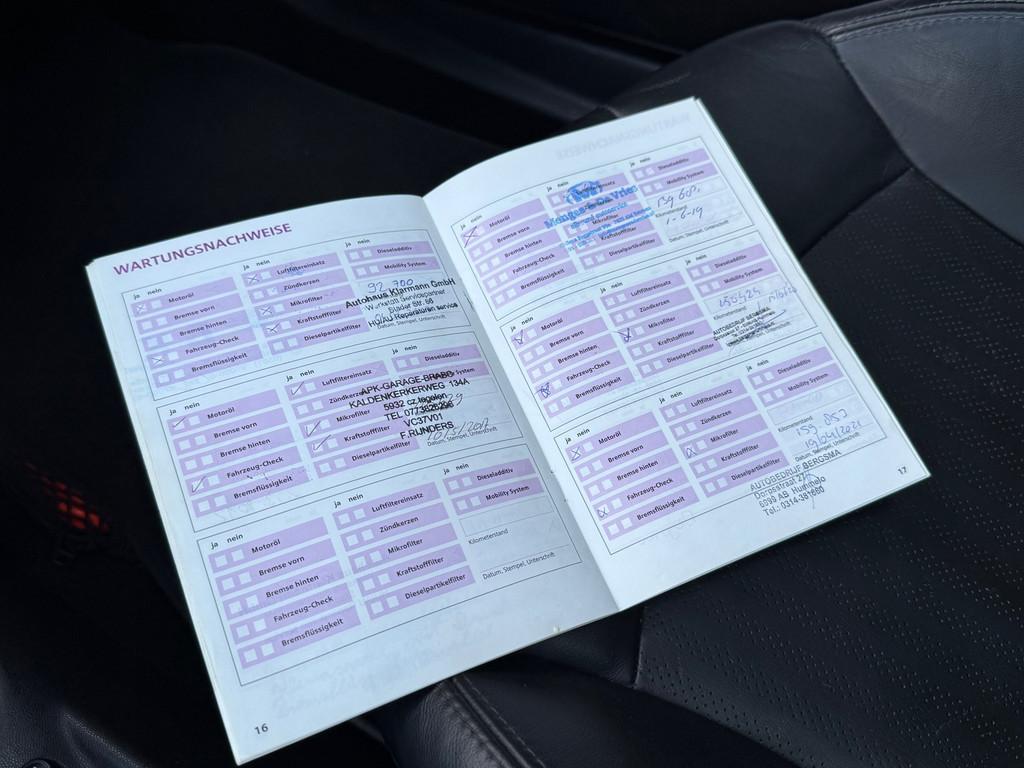 WARTUNGSNACHWEISE
ja nein
Motoröl
Bremse vorn
Bremse hinten
Fahrzeug-Check
Bremsflüssigkeit
ja nein
Luftfiltereinsatz
Zündkerzen
Mikrofilter
Kraftstofffilter
Dieselpartikelfilter
ja nein
Dieseladditiv
Mobility System
92 700
Autohaus Klarmann GmbH
Werkstatt Servicepartner
Stader Str. 66
HU/AU Reparaturen service
Datum, Stempel, Unterschrift
ja nein
Motoröl
Bremse vorn
Bremse hinten
Fahrzeug-Check
Bremsflüssigkeit
ja nein
Luftfiltereinsatz
Zündkerzen
Mikrofilter
Kraftstofffilter
Dieselpartikelfilter
ja nein
Dieseladditiv
System
APK-GARAGE-BRABO
KALDENKERKERWEG 134A
5932 cz tegelen
TEL
VC37V01
F.RIJNDERS
Datum, Stempel, Unterschrift
ja nein
Motoröl
Bremse vorn
Bremse hinten
Fahrzeug-Check
Bremsflüssigkeit
ja nein
Luftfiltereinsatz
Zündkerzen
Mikrofilter
Kraftstofffilter
Dieselpartikelfilter
ja nein
Dieseladditiv
Mobility System
Kilometerstand
Datum, Stempel, Unterschrift
16
ja nein
Motoröl
Bremse vorn
Bremse hinten
Fahrzeug-Check
Bremsflüssigkeit
ja nein
Mikrofilter
Kraftstofffilter
Dieselpartikelfilter
ja nein
Dieseladditiv
Mobility System
de Vries
Kilometerstand
-6-19
Datum, Stempel, Unterschrift
ja nein
Motoröl
Bremse vorn
Bremse hinten
Fahrzeug-Check
Bremsflüssigkeit
ja nein
Luftfiltereinsatz
Zündkerzen
Mikrofilter
Kraftstofffilter
Dieselpartikelfilter
ja nein
Dieseladditiv
Mobility System
Kilometerstand
AUTOBEDRIJF BERGSMA
ja nein
Motoröl
Bremse vorn
Bremse hinten
Fahrzeug-Check
Bremsflüssigkeit
ja nein
Luftfiltereinsatz
Zündkerzen
Mikrofilter
Kraftstofffilter
Dieselpartikelfilter
ja nein
Dieseladditiv
Mobility System
Kilometerstand
159 057
19/04/2021
Datum, Stempel, Unterschrift
AUTOBEDRIJF BERGSMA
Dorpsstraat 27
6999 AB Hummelo
Tel.: 0314-381660
17